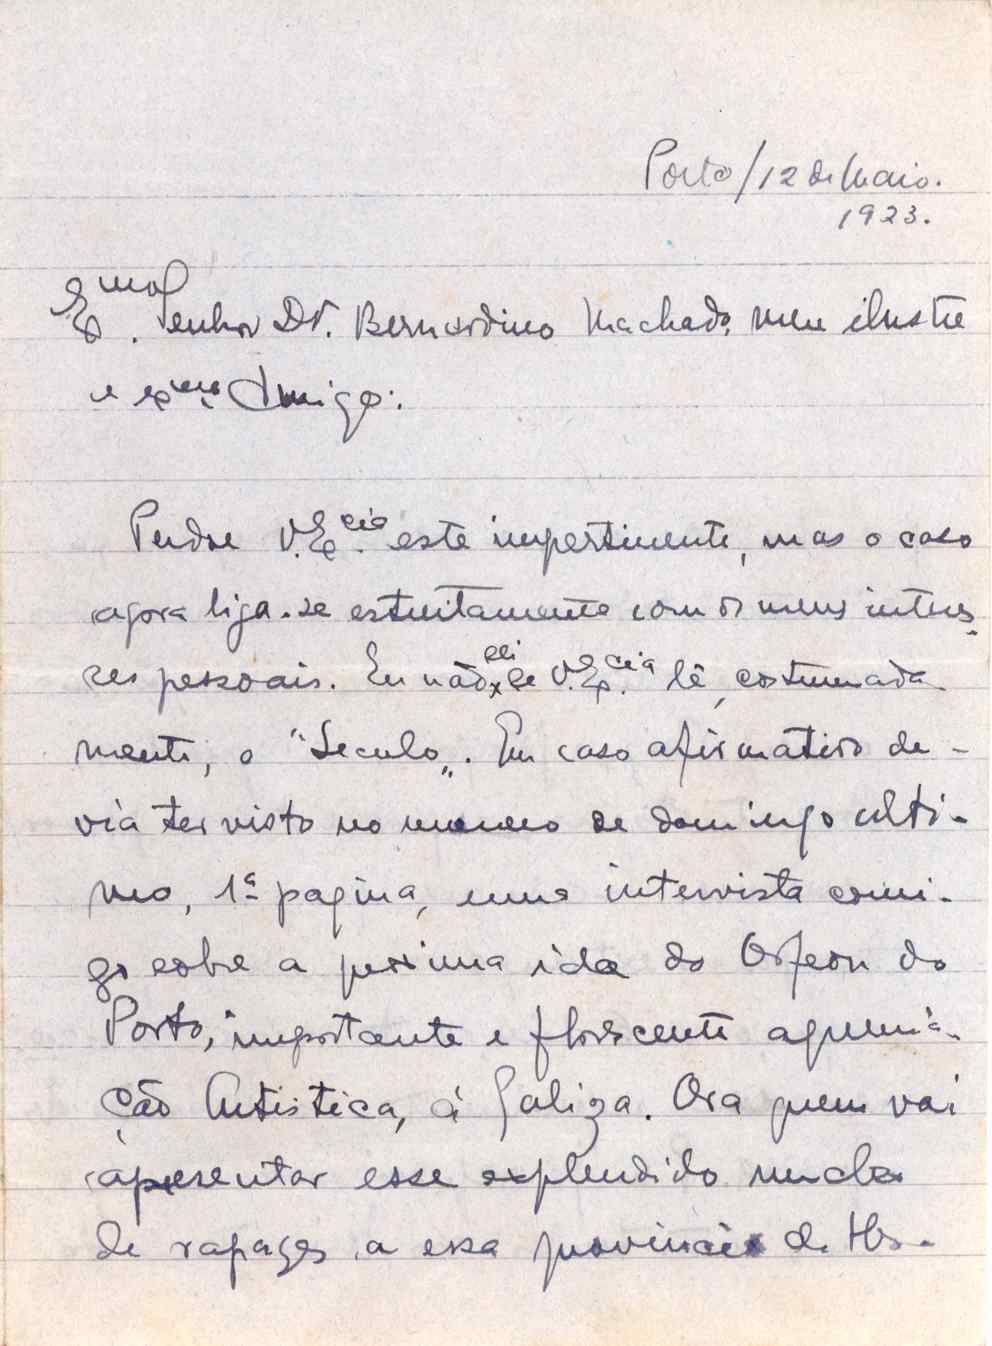 Porto/12 de Maio.
1923.
Exmo Senhor Dr. Bernardino Machado, meu ilustre
e exmo Amigo:
Perdoe V. Excia este impertinente, mas o caso
agora liga-se estreitamente com os meus interes-
ses pessoais. Eu não sei se V. Excia lê, costumada-
mente, o "Seculo". Em caso afirmativo de-
via ter visto no numero de domingo ulti-
mo, 1ª pagina, uma intervista comi-
go sobre a proxima ida do Orfeon do
Porto, importante e florescente agremia-
ção Artistica, á Galiza. Ora quem vai
apresentar esse explendido nucleo
de rapazes a essa provincia de Hes-